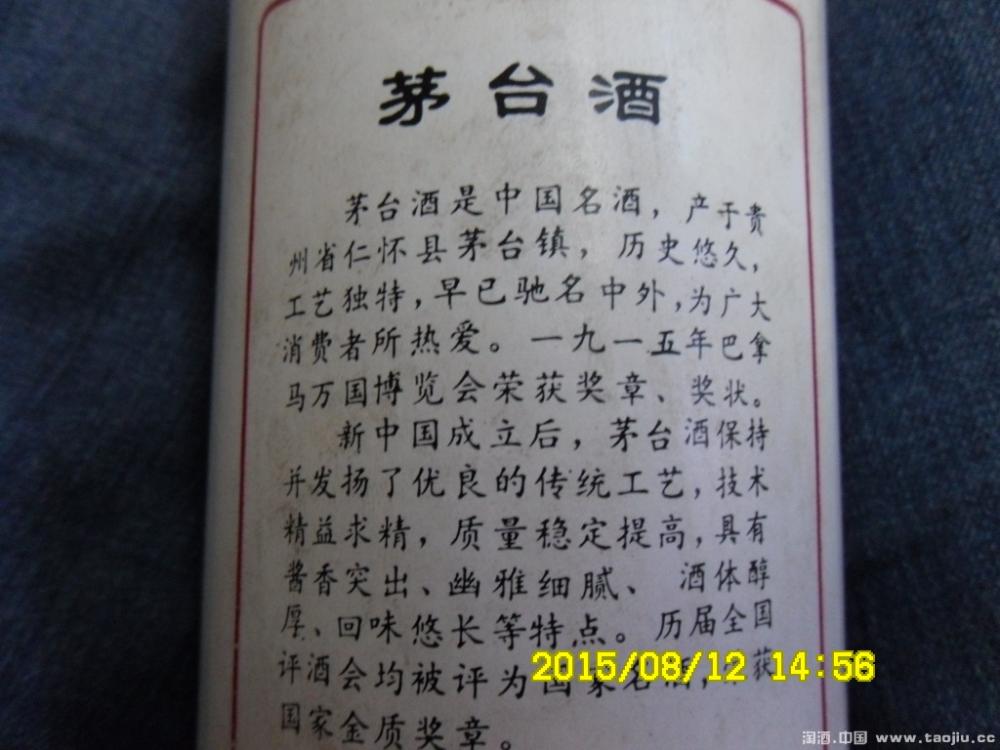 茅台酒
茅台酒是中国名酒，产于贵
州省仁怀县茅台镇，历史悠久，
工艺独特，早已驰名中外，为广大
消费者所热爱。一九一五年巴拿
马万国博览会荣获奖章、奖状。
新中国成立后，茅台酒保持
并发扬了优良的传统工艺，技术
精益求精，质量稳定提高，具有
酱香突出、幽雅细腻、酒体醇
厚、回味悠长等特点。历届全国
评酒会均被评为国家名酒，获
国家金质奖章。
2015/08/12 14:56
淘酒.中国 www.taojiu.cc